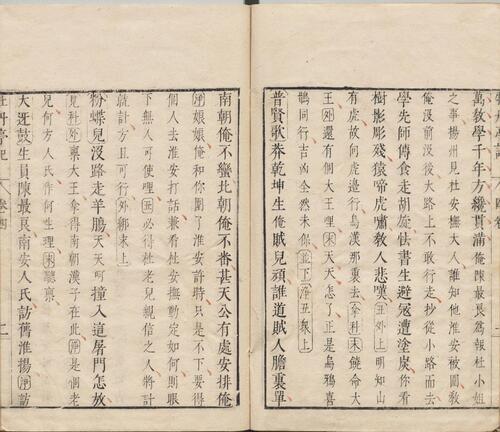 萬教學千年方纔貫滿俺陳最良爲報杜小姐
之事揚州見杜安撫大人誰知他淮安被圍教
俺沒前沒後大路上不敢行走抄從小路而去
學先師傳食走胡旋怯書生避寇遭塗炭你看
樹影彫殘猿啼虎嘯教人悲嘆丑外上明知山
有虎故向虎邊行鳥漢那裏去拿杜末饒命大
王外還有個大王哩末天天怎了正是烏鴉喜
鵲同行吉凶全然未保並下淨丑衆上
普賢歌莽乾坤生俺賊兒頑誰道賊人膽裏單
南朝俺不蠻北朝俺不番甚天公有處安排俺
淨娘娘俺和你圍了淮安許時只是不下要得
個人去淮安打話兼看杜安撫動定如何則眼
下無人可使哩丑必得杜老兒親信之人將計
就計方且可行外綁末上
粉蝶兒沒路走羊腸天天呵撞入這屠門怎放
見杜外稟大王拿得南朝漢子在此淨是個老
兒何方人氏作何生理末聽稟
大迓鼓生員陳最良南安人氏訪舊淮揚淨訪
牡丹亭記 卷四 二